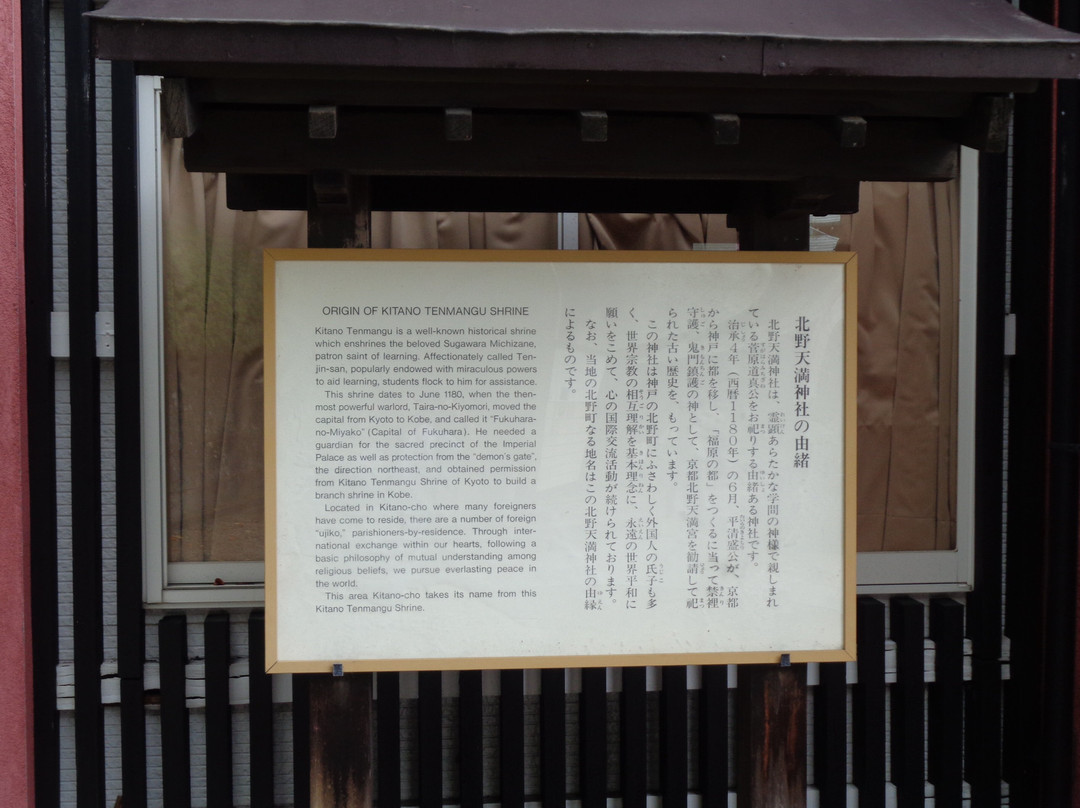 ORIGIN OF KITANO TENMANGU SHRINE
Kitano Tenmangu is a well-known historical shrine
which enshrines the beloved Sugawara Michizane,
patron saint of learning. Affectionately called Ten-
jin-san, popularly endowed with miraculous powers
to aid learning, students flock to him for assistance.
This shrine dates to June 1180, when the then-
most powerful warlord, Taira-no-Kiyomori, moved the
capital from Kyoto to Kobe, and called it "Fukuhara-
no-Miyako" (Capital of Fukuhara). He needed a
guardian for the sacred precinct of the Imperial
Palace as well as protection from the "demon's gate",
the direction northeast, and obtained permission
from Kitano Tenmangu Shrine of Kyoto to build a
branch shrine in Kobe.
Located in Kitano-cho where many foreigners
have come to reside, there are a number of foreign
"ujiko," parishioners-by-residence. Through inter-
national exchange within our hearts, following a
basic philosophy of mutual understanding among
religious beliefs, we pursue everlasting peace in
the world.
This area Kitano-cho takes its name from this
Kitano Tenmangu Shrine.
北野天満神社の由緒
北野天満神社は、霊顕あらたかな学問の神様で親しまれ
ている菅原道真公をお祀りする由緒ある神社です。
治承4年（西暦1180年）の6月、平清盛公が、京都
から神戸に都を移し、「福原の都」をつくるに当って禁裡
守護、鬼門鎮護の神として、京都北野天満宮を勧請して祀
られた古い歴史を、もっています。
この神社は神戸の北野町にふさわしく外国人の氏子も多
く、世界宗教の相互理解を基本理念に、永遠の世界平和に
願いをこめて、心の国際交流活動が続けられております。
なお、当地の北野町なる地名はこの北野天満神社の由縁
によるものです。